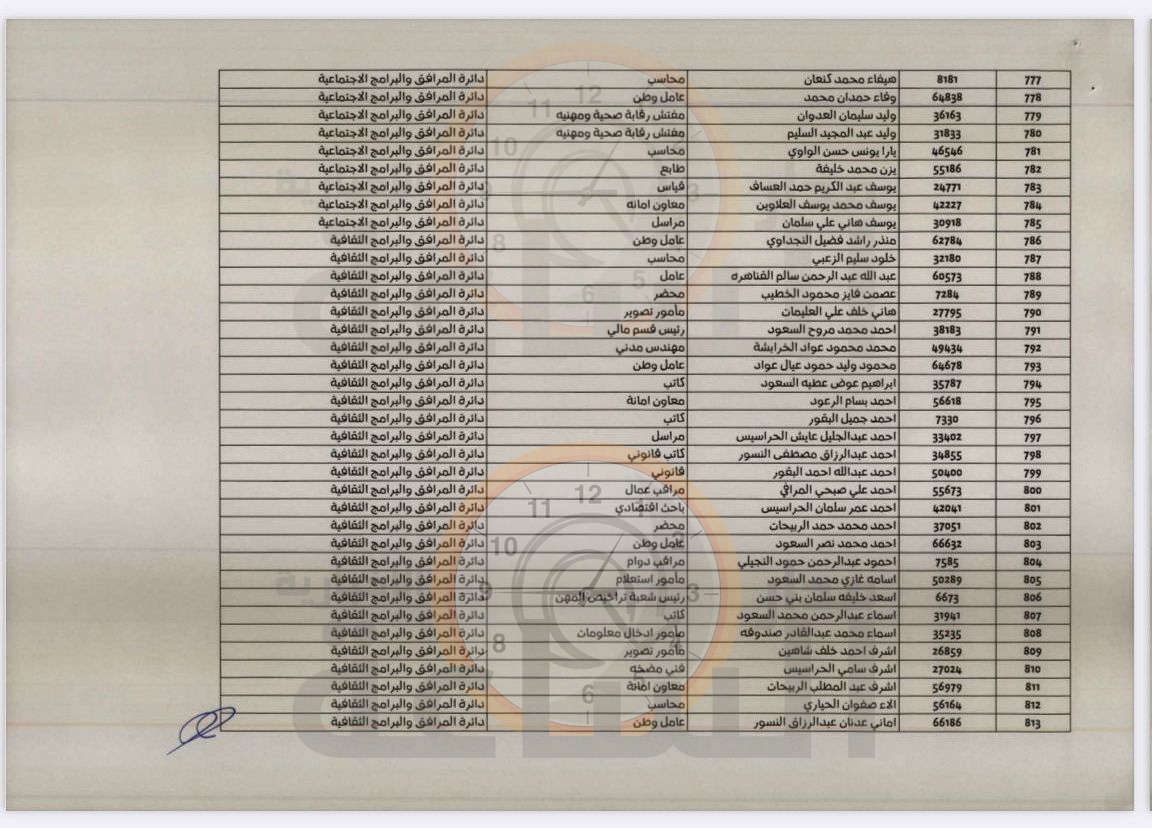 777 8181 هيفاء محمد كنعان محاسب دائرة المرافق والبرامج الاجتماعية
778 64838 وفاء حمدان محمد عامل وطن دائرة المرافق والبرامج الاجتماعية
779 36163 وليد سليمان العدوان مفتش رقابة صحية ومهنيه دائرة المرافق والبرامج الاجتماعية
780 31833 وليد عبد المجيد السليم مفتش رقابة صحية ومهنيه دائرة المرافق والبرامج الاجتماعية
781 46546 يارا يونس حسن الواوي محاسب دائرة المرافق والبرامج الاجتماعية
782 55186 يزن محمد خليفة طابع دائرة المرافق والبرامج الاجتماعية
783 24771 يوسف عبد الكريم حمد العساف قياس دائرة المرافق والبرامج الاجتماعية
784 42227 يوسف محمد يوسف العلاوين معاون امانه دائرة المرافق والبرامج الاجتماعية
785 30918 يوسف هاني علي سلمان مراسل دائرة المرافق والبرامج الاجتماعية
786 62784 منذر راشد فضيل النجداوي عامل وطن دائرة المرافق والبرامج الثقافية
787 32180 خلود سليم الزعبي محاسب دائرة المرافق والبرامج الثقافية
788 60573 عبد الله عبد الرحمن سالم القناهره عامل دائرة المرافق والبرامج الثقافية
789 7284 عصمت فايز محمود الخطيب محضر دائرة المرافق والبرامج الثقافية
790 27795 هاني خلف علي العليمات مأمور تصوير دائرة المرافق والبرامج الثقافية
791 38183 احمد محمد مروح السعود رئيس قسم مالي دائرة المرافق والبرامج الثقافية
792 49434 محمد محمود عواد الخرابشة مهندس مدني دائرة المرافق والبرامج الثقافية
793 64678 محمود وليد حمود عيال عواد عامل وطن دائرة المرافق والبرامج الثقافية
794 35787 ابراهيم عوض عطيه السعود كاتب دائرة المرافق والبرامج الثقافية
795 56618 احمد بسام الرعود معاون امانة دائرة المرافق والبرامج الثقافية
796 7330 احمد جميل البقور كاتب دائرة المرافق والبرامج الثقافية
797 33402 احمد عبدالجليل عايش الحراسيس مراسل دائرة المرافق والبرامج الثقافية
798 34855 احمد عبدالرزاق مصطفى النسور كاتب قانوني دائرة المرافق والبرامج الثقافية
799 50400 احمد عبدالله احمد البقور قانوني دائرة المرافق والبرامج الثقافية
800 55673 احمد علي صبحي المرافي مراقب عمال دائرة المرافق والبرامج الثقافية
801 42041 احمد عمر سلمان الحراسيس باحث اقتصادي دائرة المرافق والبرامج الثقافية
802 37051 احمد محمد حمد الربيحات محضر دائرة المرافق والبرامج الثقافية
803 66632 احمد محمد نصر السعود عامل وطن دائرة المرافق والبرامج الثقافية
804 7585 احمود عبدالرحمن حمود النجيلي مراقب دوام دائرة المرافق والبرامج الثقافية
805 50289 اسامه غازي محمد السعود مأمور استعلام دائرة المرافق والبرامج الثقافية
806 6673 اسعد خليفه سلمان بني حسن رئيس شعبة تراخيص المهن دائرة المرافق والبرامج الثقافية
807 31941 اسماء عبدالرحمن محمد السعود كاتب دائرة المرافق والبرامج الثقافية
808 35235 اسماء محمد عبدالقادر صندوقه مأمور ادخال معلومات دائرة المرافق والبرامج الثقافية
809 26859 اشرف احمد خلف شاهين مأمور تصوير دائرة المرافق والبرامج الثقافية
810 27024 اشرف سامي الحراسيس فني مضخه دائرة المرافق والبرامج الثقافية
811 56979 اشرف عبد المطلب الربيحات معاون امانة دائرة المرافق والبرامج الثقافية
812 56164 الاء صفوان الحياري محاسب دائرة المرافق والبرامج الثقافية
813 66186 اماني عدنان عبدالرزاق النسور عامل وطن دائرة المرافق والبرامج الثقافية